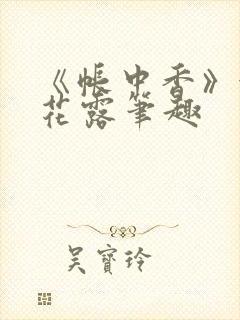 《帳中香》
花露筆趣
吳寶玲